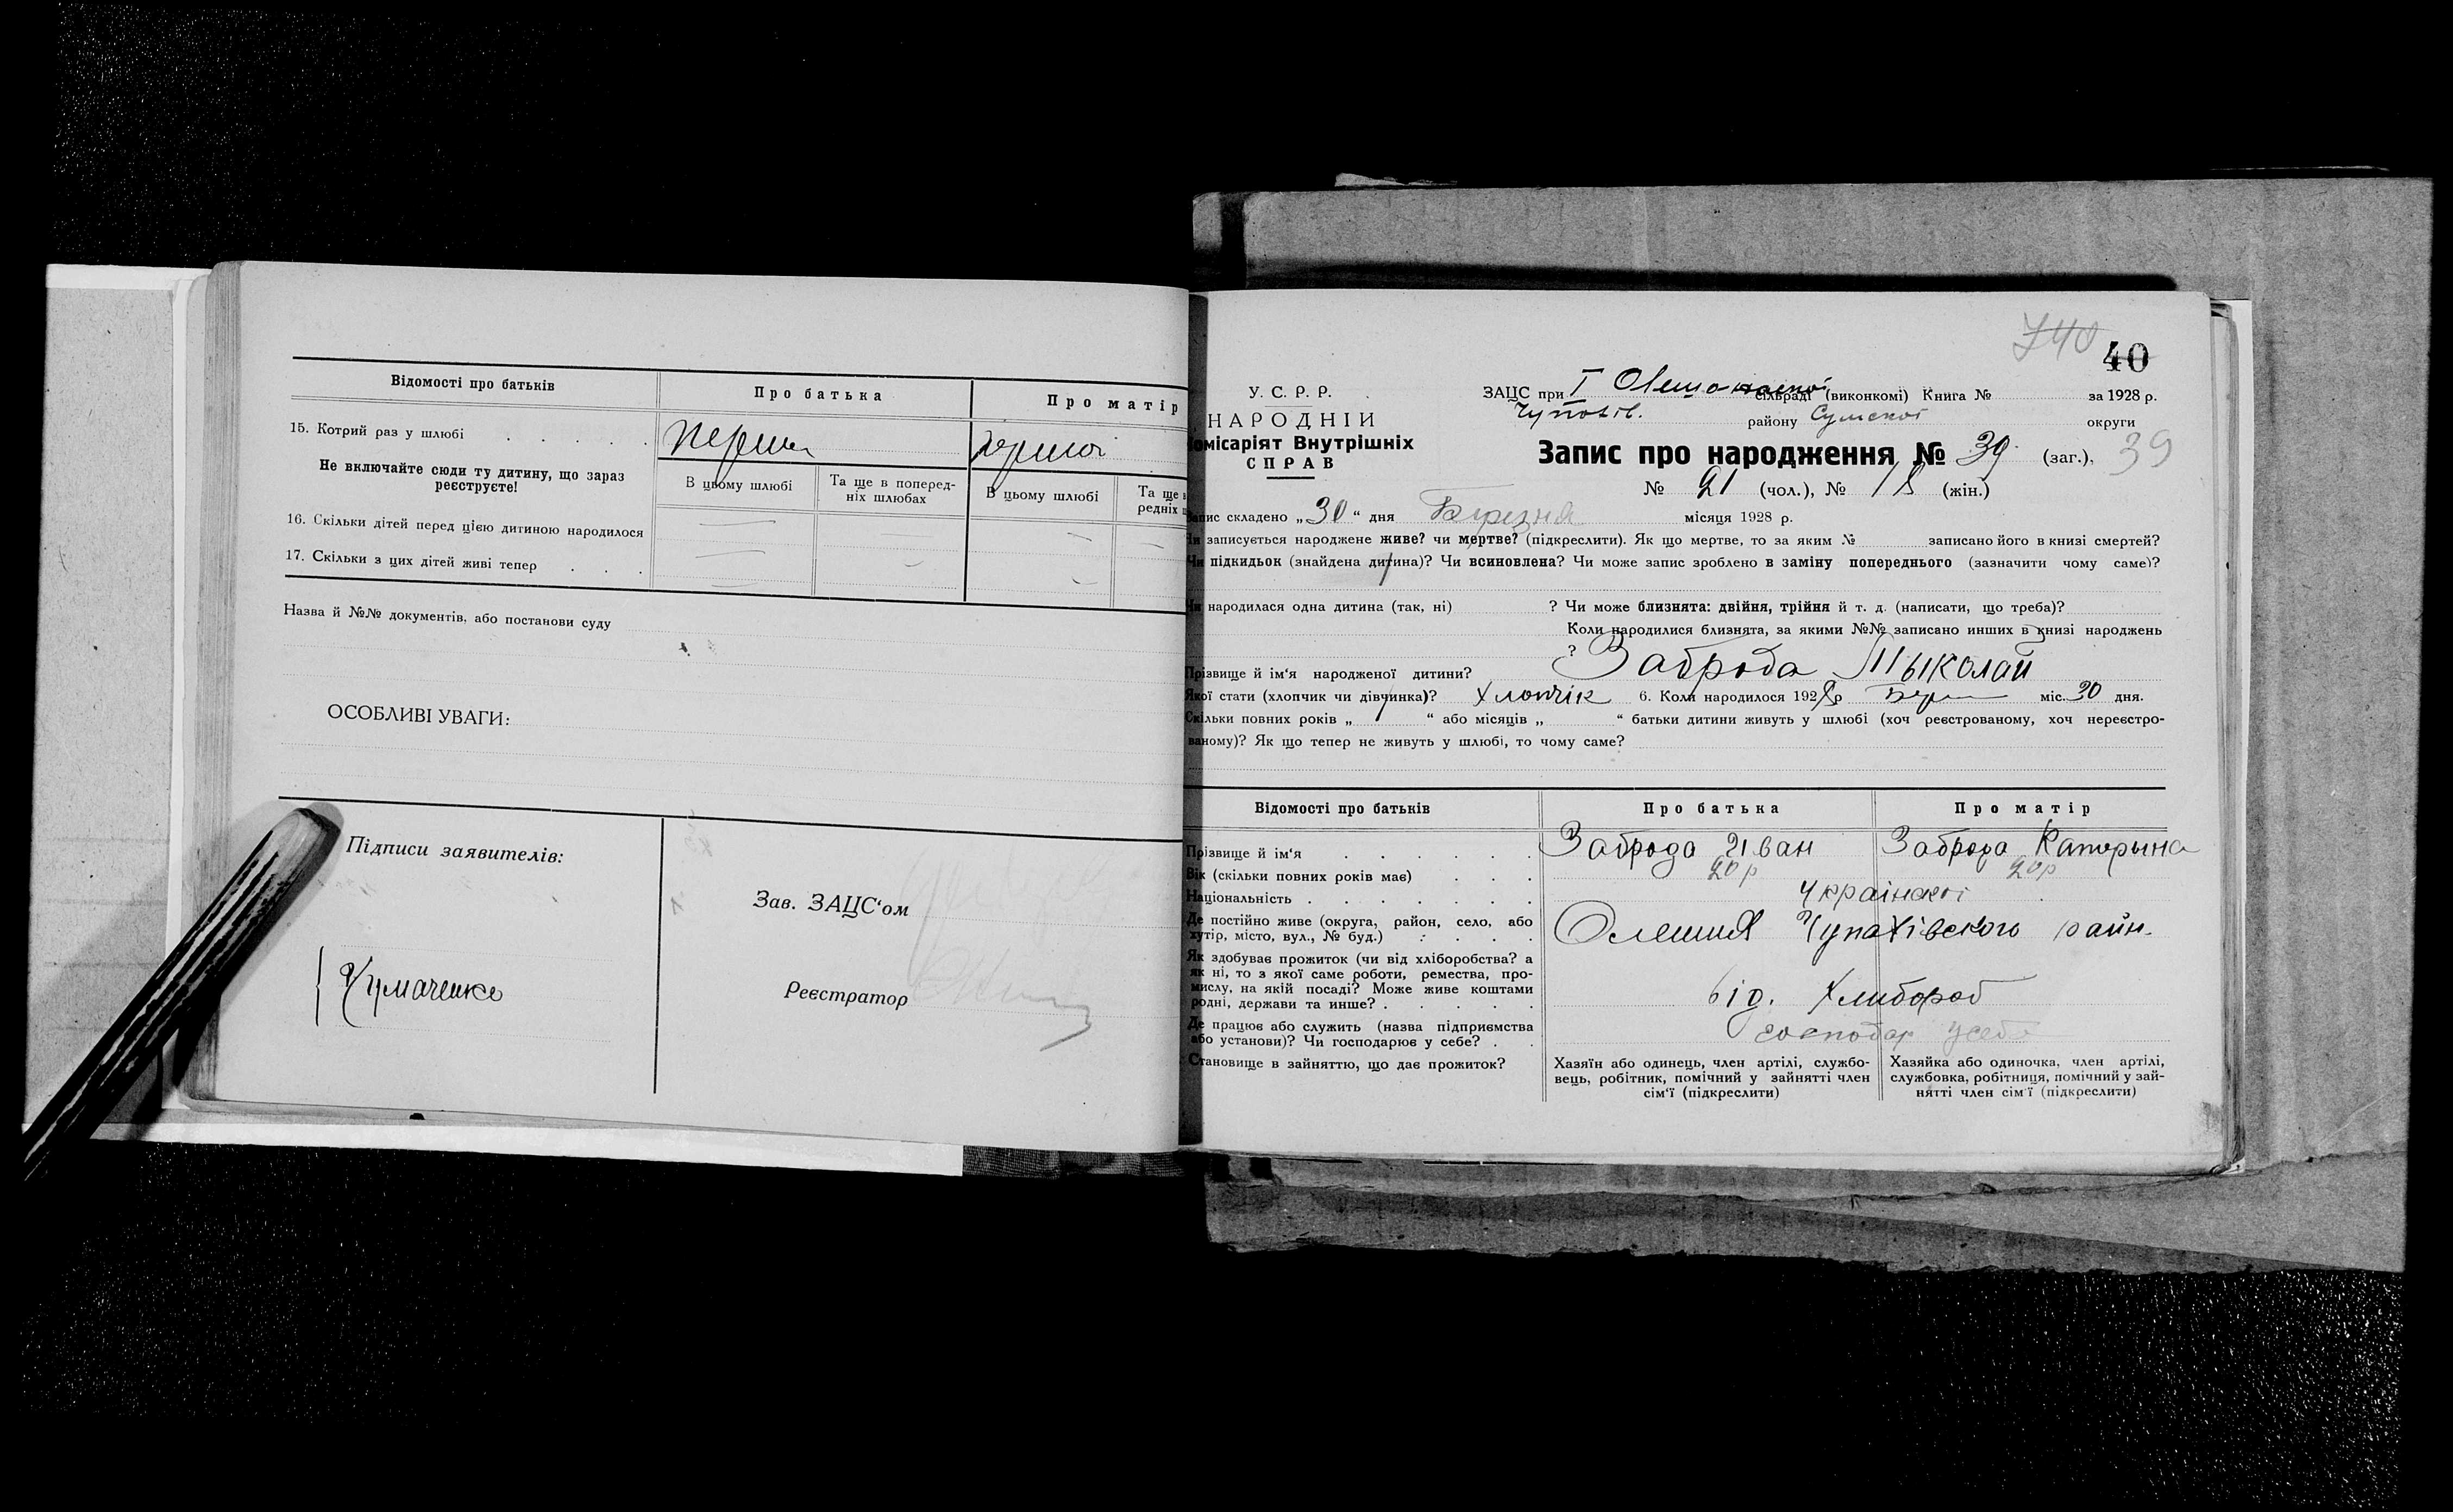 Відомості про батьків
Про батька
Про матір
15. Котрий раз у шлюбі
перший
Не включайте сюди ту дитину, що зараз
реєструєте!
В цьому шлюбі
Та ще в поперед-
ніх шлюбах
В цьому шлюбі
Та ще в
редніх
16. Скільки дітей перед цією дитиною народилося
17. Скільки з цих дітей живі тепер
Назва й №№ документів, або постанови суду
ОСОБЛИВІ УВАГИ:
Підписи заявителів:
Чумаченко
Зав. ЗАЦС'ом
Реєстратор
740
40
У. С. Р. Р.
НАРОДНІЙ
омісаріят Внутрішніх
СПРАВ
ЗАЦС при I сільраді (виконкомі) Книга № за 1928 р.
району Сумської округи
Запис про народження № 39 (заг.), 39
№ 21 (чол.), № 18 (жін.)
апис складено „30“ дня Березня місяця 1928 р.
и записується народжене живе? чи мертве? (підкреслити). Як що мертве, то за яким № записано його в книзі смертей?
Чи підкидьок (знайдена дитина)? Чи всиновлена? Чи може запис зроблено в заміну попереднього (зазначити чому саме)?
и народилася одна дитина (так, ні) ? Чи може близнята: двійня, трійня й т. д. (написати, що треба)?
Коли народилися близнята, за якими №№ записано инших в книзі народжень
?
Прізвище й ім'я народженої дитини? Заброда Мыколай
Якої стати (хлопчик чи дівчинка)? Хлопчік 6. Коли народилося 1928р Бер міс. 30 дня.
Скільки повних років „ “ або місяців „ “ батьки дитини живуть у шлюбі (хоч реєстрованому, хоч нереєстро-
ваному)? Як що тепер не живуть у шлюбі, то чому саме?
Відомості про батьків
Про батька
Про матір
Прізвище й ім'я
Заброда Иван
Заброда Катерына
Вік (скільки повних років має)
20р
20р
Національність
Українскі
Де постійно живе (округа, район, село, або
хутір, місто, вул., № буд.)
Олешня Чупахівского райн.
Як здобуває прожиток (чи від хліборобства? а
як ні, то з якої саме роботи, ремества, про-
мислу, на якій посаді? Може живе коштами
родні, держави та инше?
від. Хлибороб
Де працює або служить (назва підприємства
або установи)? Чи господарює у себе?
господар усебе
Становище в зайняттю, що дає прожиток?
Хазяїн або одинець, член артілі, службо-
вець, робітник, помічний у зайнятті член
сім'ї (підкреслити)
Хазяйка або одиночка, член артілі,
службовка, робітниця, помічний у зай-
нятті член сім'ї (підкреслити)